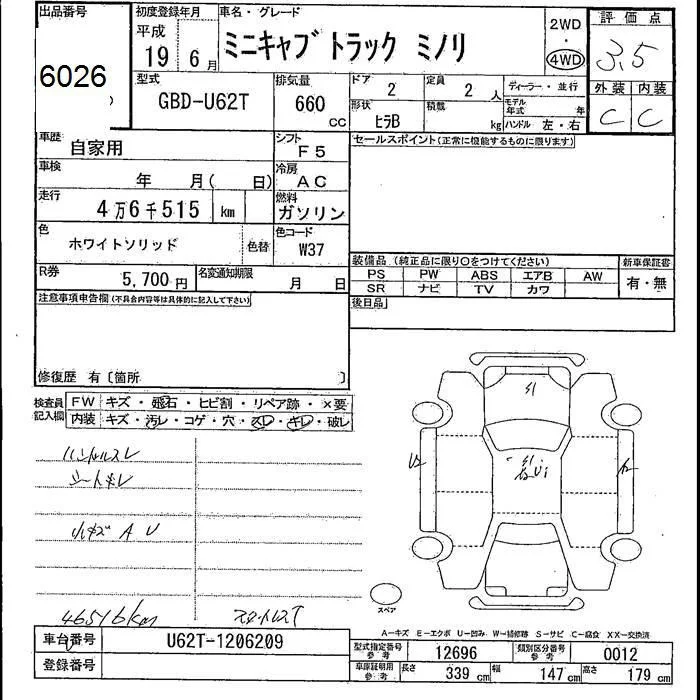 出品番号 初度登録年月 車名・グレード
平成 19 年 6 月
ミニキャブ トラック ミノリ
2WD
・
4WD
評 価 点
3.5
6026
型式 排気量 ドア 定員 ディーラー・並行
GBD-U62T 660 CC 2 2 人
外装 内装
C C
形状 積載 モデル年式 年
ヒラB kg ハンドル 左・右
車歴 シフト セールスポイント(正常に機能するものに限ります)
自家用 F5
車検 冷房
年 月( 日) AC
走行 燃料
4万6千515 km ガソリン
色 色コード
ホワイトソリッド 色替 W37
装備品 (純正品に限り○をつけてください) 新車保証書
PS PW ABS エアB AW
SR ナビ TV カワ
有・無
R券 名変通知期限
5,700円 月 日
後日品
注意事項申告欄(不具合内容等は具体的に記入して下さい)
修復歴 有〔箇所 〕
検査員記入欄
FW キズ・飛石・ヒビ割・リペア跡・×要
内装 キズ・汚レ・コゲ・穴・スレ・キレ・破レ
ハンドルスレ
シートキレ
小キズ A U
46516km
S1
U2
S1
U1
A2
スペア
A-キズ E-エクボ U-凹み W-補修跡 S-サビ C-腐食 XX-交換済
車台番号 U62T-1206209
登録番号
型式指定番号 参考 12696 類別区分番号 参考 0012
車庫証明用 参考 長さ 339 cm 幅 147 cm 高さ 179 cm